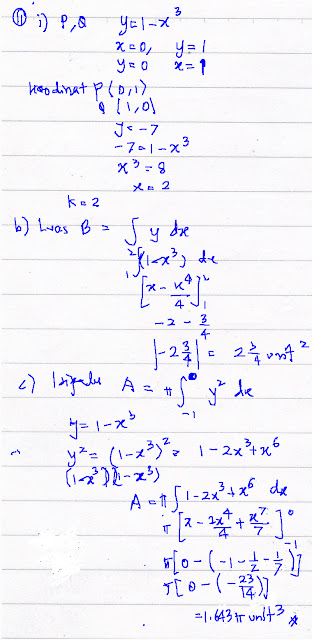 ⑪ i) P, Q y = 1 - x³
x = 0, y = 1
y = 0 x = 1
koodinat P (0, 1)
Q (1, 0)
y = -7
-7 = 1 - x³
x³ = 8
x = 2
k = 2
b) Luas B = ∫ y dx
₁∫² (1-x³) dx
[x - x⁴/4]₁²
-2 - 3/4
|-2 3/4| = 2 3/4 unit²
c) A = π ∫₋₁⁰ y² dx
y = 1 - x³
y² = (1-x³)² = 1 - 2x³ + x⁶
(1-x³)(1-x³)
A = π ∫ 1 - 2x³ + x⁶ dx
π [x - 2x⁴/4 + x⁷/7]₋₁⁰
π [0 - (-1 - 1/2 - 1/7)]
π [0 - (-23/14)]
= 1.643 π unit³